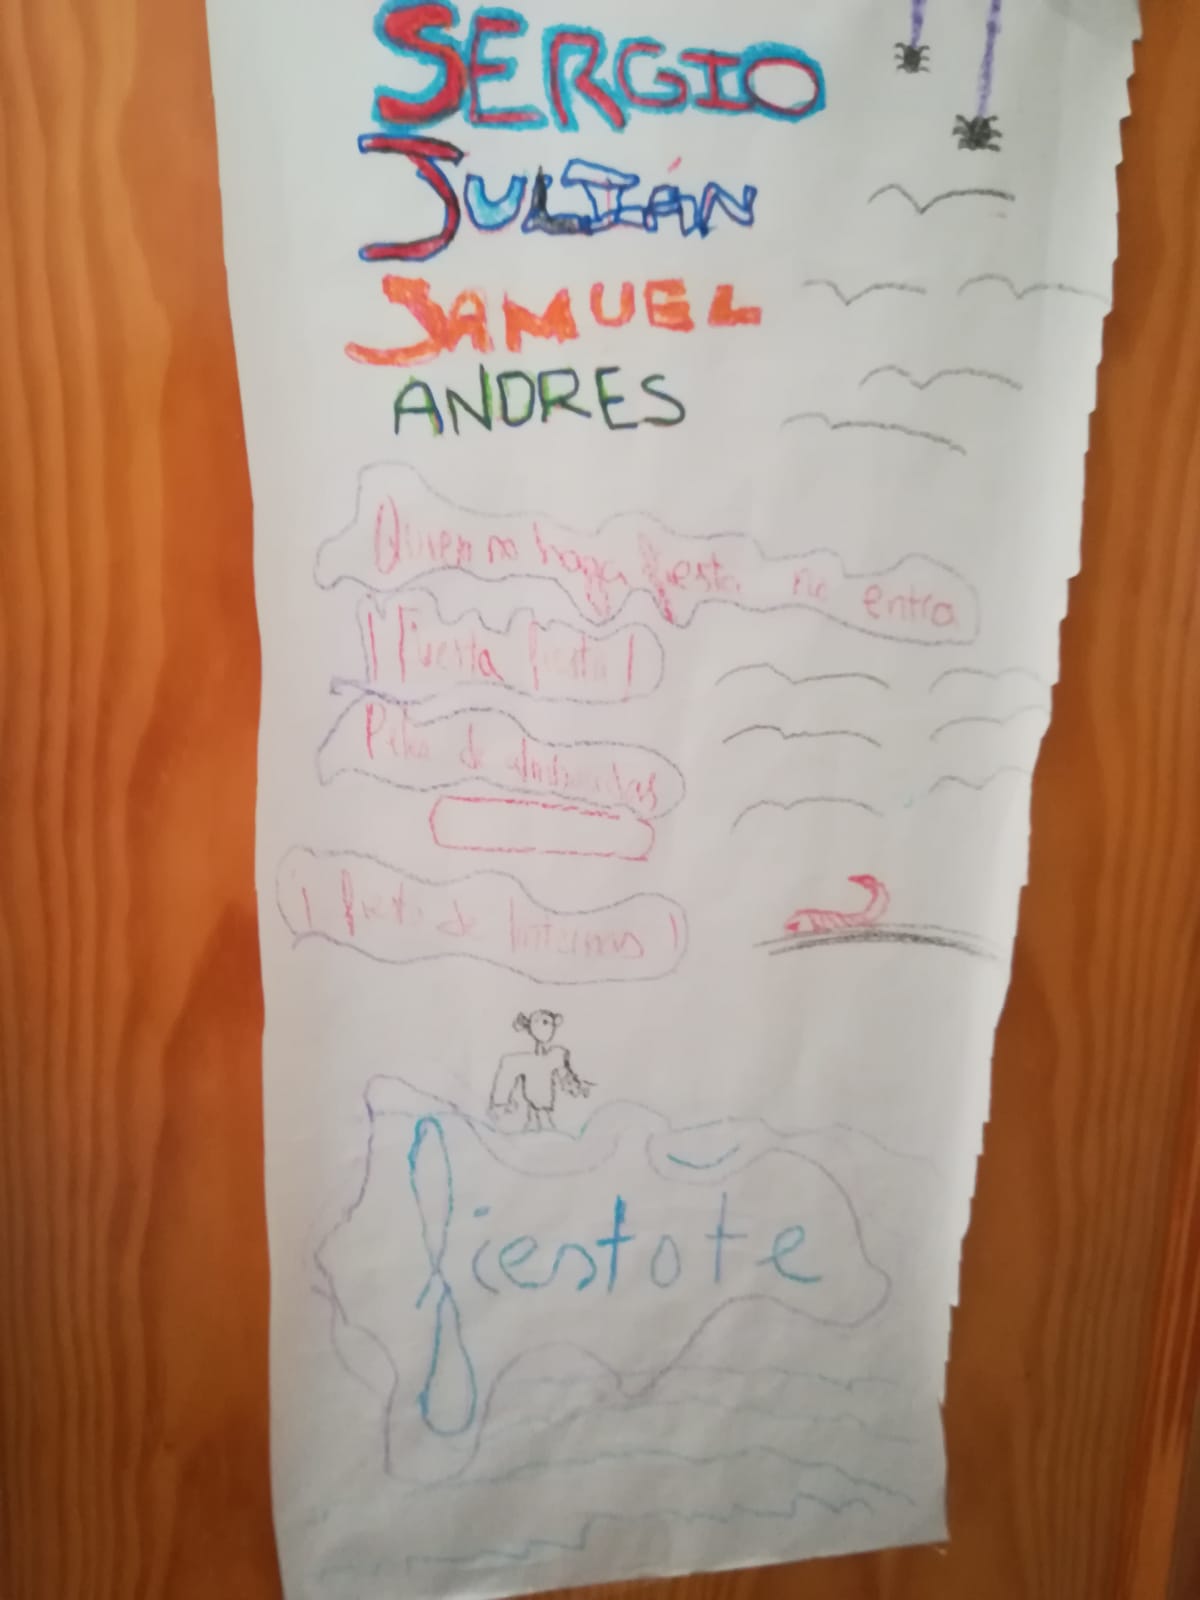 SERGIO
JULIÁN
SAMUEL
ANDRES
Quien no haga fiesta no entra
¡Fiesta fiesta!
Pelea de almohadas
¡fiesta de linternas!
fiestote